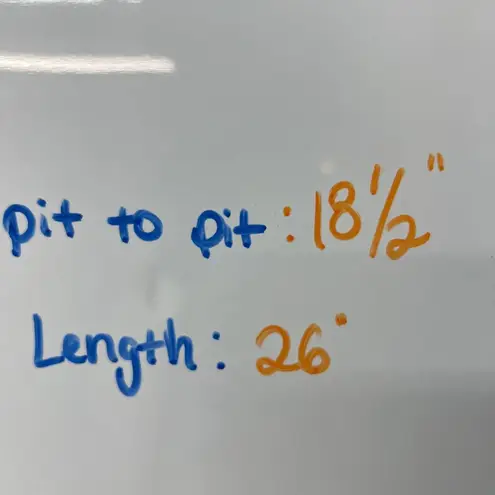 pit to pit: 18 1/2"
Length: 26"